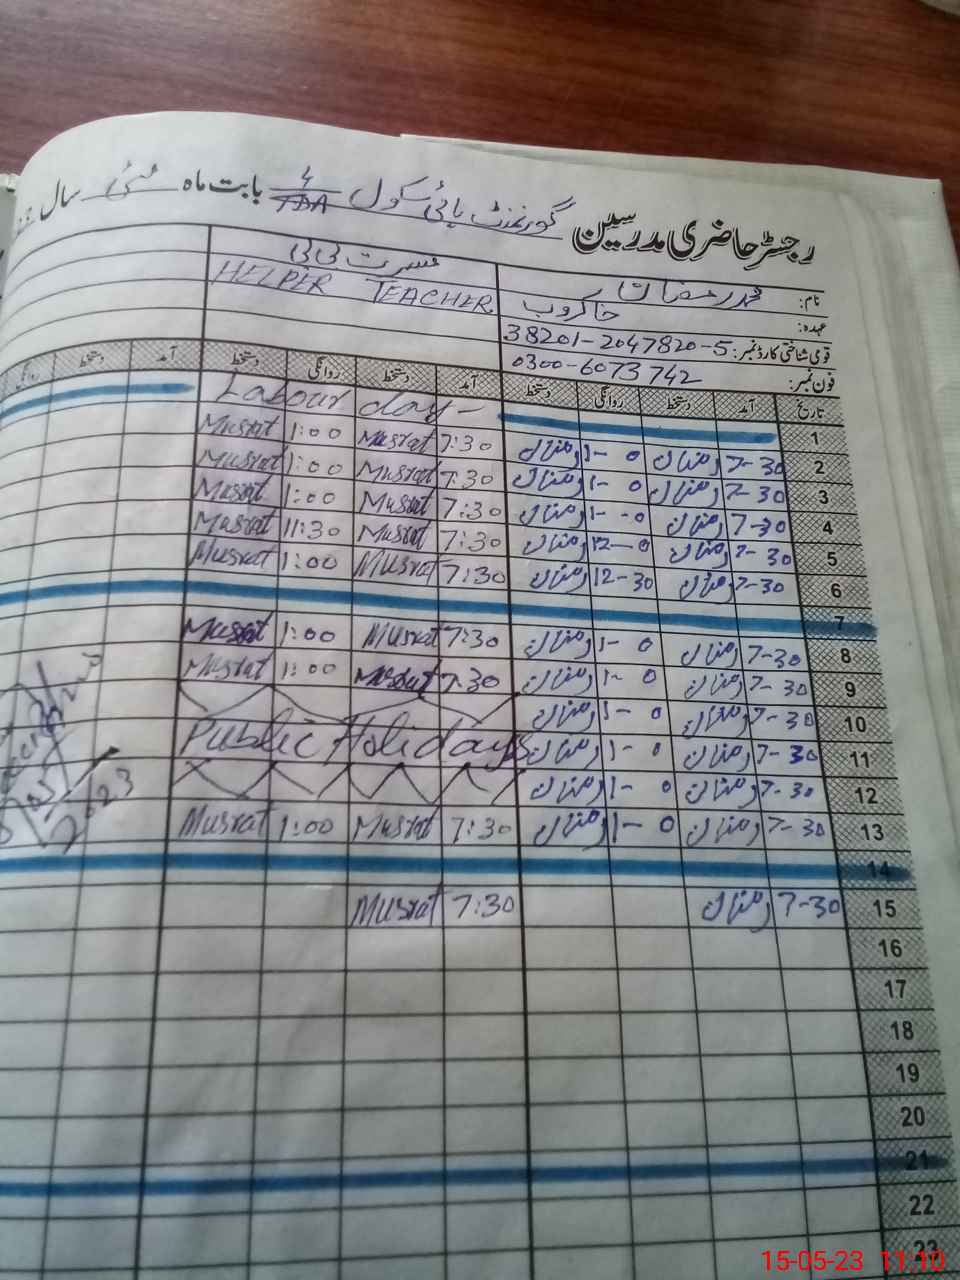 رجسٹر حاضری مدرسین گورنمنٹ ہائی سکول 4/TDA بابت ماہ مئی سال
نام: محمد رمضان مسرت بی بی
عہدہ: خاکروب HELPER TEACHER
قومی شناختی کارڈ نمبر: 38201-2047820-5
فون نمبر: 0300-6073742
تاریخ آمد دستخط روانگی دستخط آمد دستخط روانگی دستخط آمد دستخط روانگی
1 Labour day -
2 7-30 رمضان 1-0 رمضان 7:30 Musrat 1:00 Musrat
3 7-30 رمضان 1-0 رمضان 7:30 Musrat 1:00 Musrat
4 7-30 رمضان 1-0 رمضان 7:30 Musrat 1:00 Musrat
5 7-30 رمضان 12-0 رمضان 7:30 Musrat 11:30 Musrat
6 7-30 رمضان 12-30 رمضان 7:30 Musrat 1:00 Musrat
7
8 7-30 رمضان 1-0 رمضان 7:30 Musrat 1:00 Musrat
9 7-30 رمضان 1-0 رمضان 7:30 Musrat 1:00 Musrat
10 7-30 رمضان 1-0 رمضان
11 7-30 رمضان 1-0 رمضان Public Holidays
12 7-30 رمضان 1-0 رمضان
13 7-30 رمضان 1-0 رمضان 7:30 Musrat 1:00 Musrat
14
15 7-30 رمضان 7:30 Musrat
16
17
18
19
20
21
22
23
15-05-23 11:10